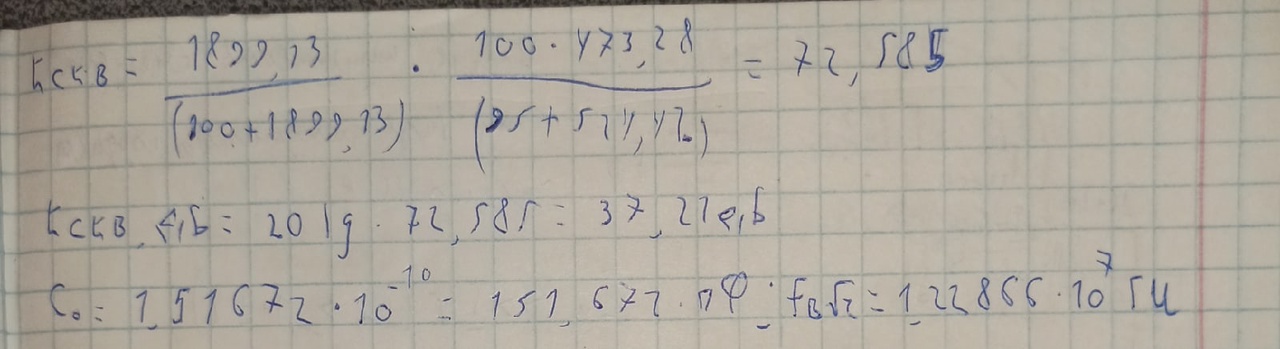 Kскв = 1899,13 / (100 + 1899,13) · 100 · 473,28 / (95 + 521,42) = 72,585
Kскв, дБ = 20 lg · 72,585 = 37,21 дБ
C₀ = 1,51672 · 10⁻¹⁰ = 151,672 · пФ; fв√2 = 1,22866 · 10⁷ Гц